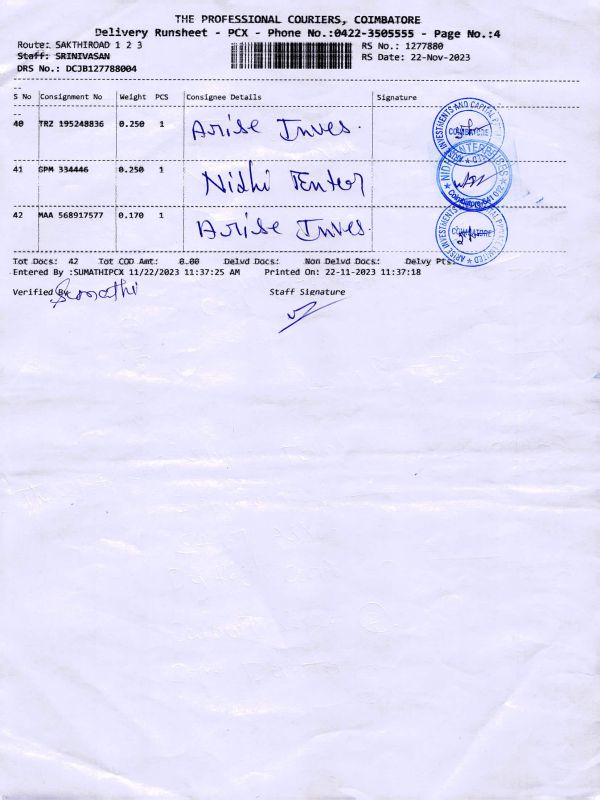 THE PROFESSIONAL COURIERS, COIMBATORE
Delivery Runsheet - PCX - Phone No.:0422-3505555 - Page No.:4
Route: SAKTHIROAD 1 2 3 RS No.: 1277880
Staff: SRINIVASAN RS Date: 22-Nov-2023
DRS No.: DCJB127788004
S No Consignment No Weight PCS Consignee Details Signature
40 TRZ 195248836 0.250 1 Arise Inves.
COIMBATORE
41 GPM 334446 0.250 1 Nidhi Enter
NIDHI ENTERPRISES
42 MAA 568917577 0.170 1 Arise Inves.
ARISE INVESTMENTS LIMITED
COIMBATORE
Tot Docs: 42 Tot COD Amt: 0.00 Delvd Docs: Non Delvd Docs: Delvy Pts:
Entered By :SUMATHIPCX 11/22/2023 11:37:25 AM Printed On: 22-11-2023 11:37:18
Verified By Sumathi Staff Signature